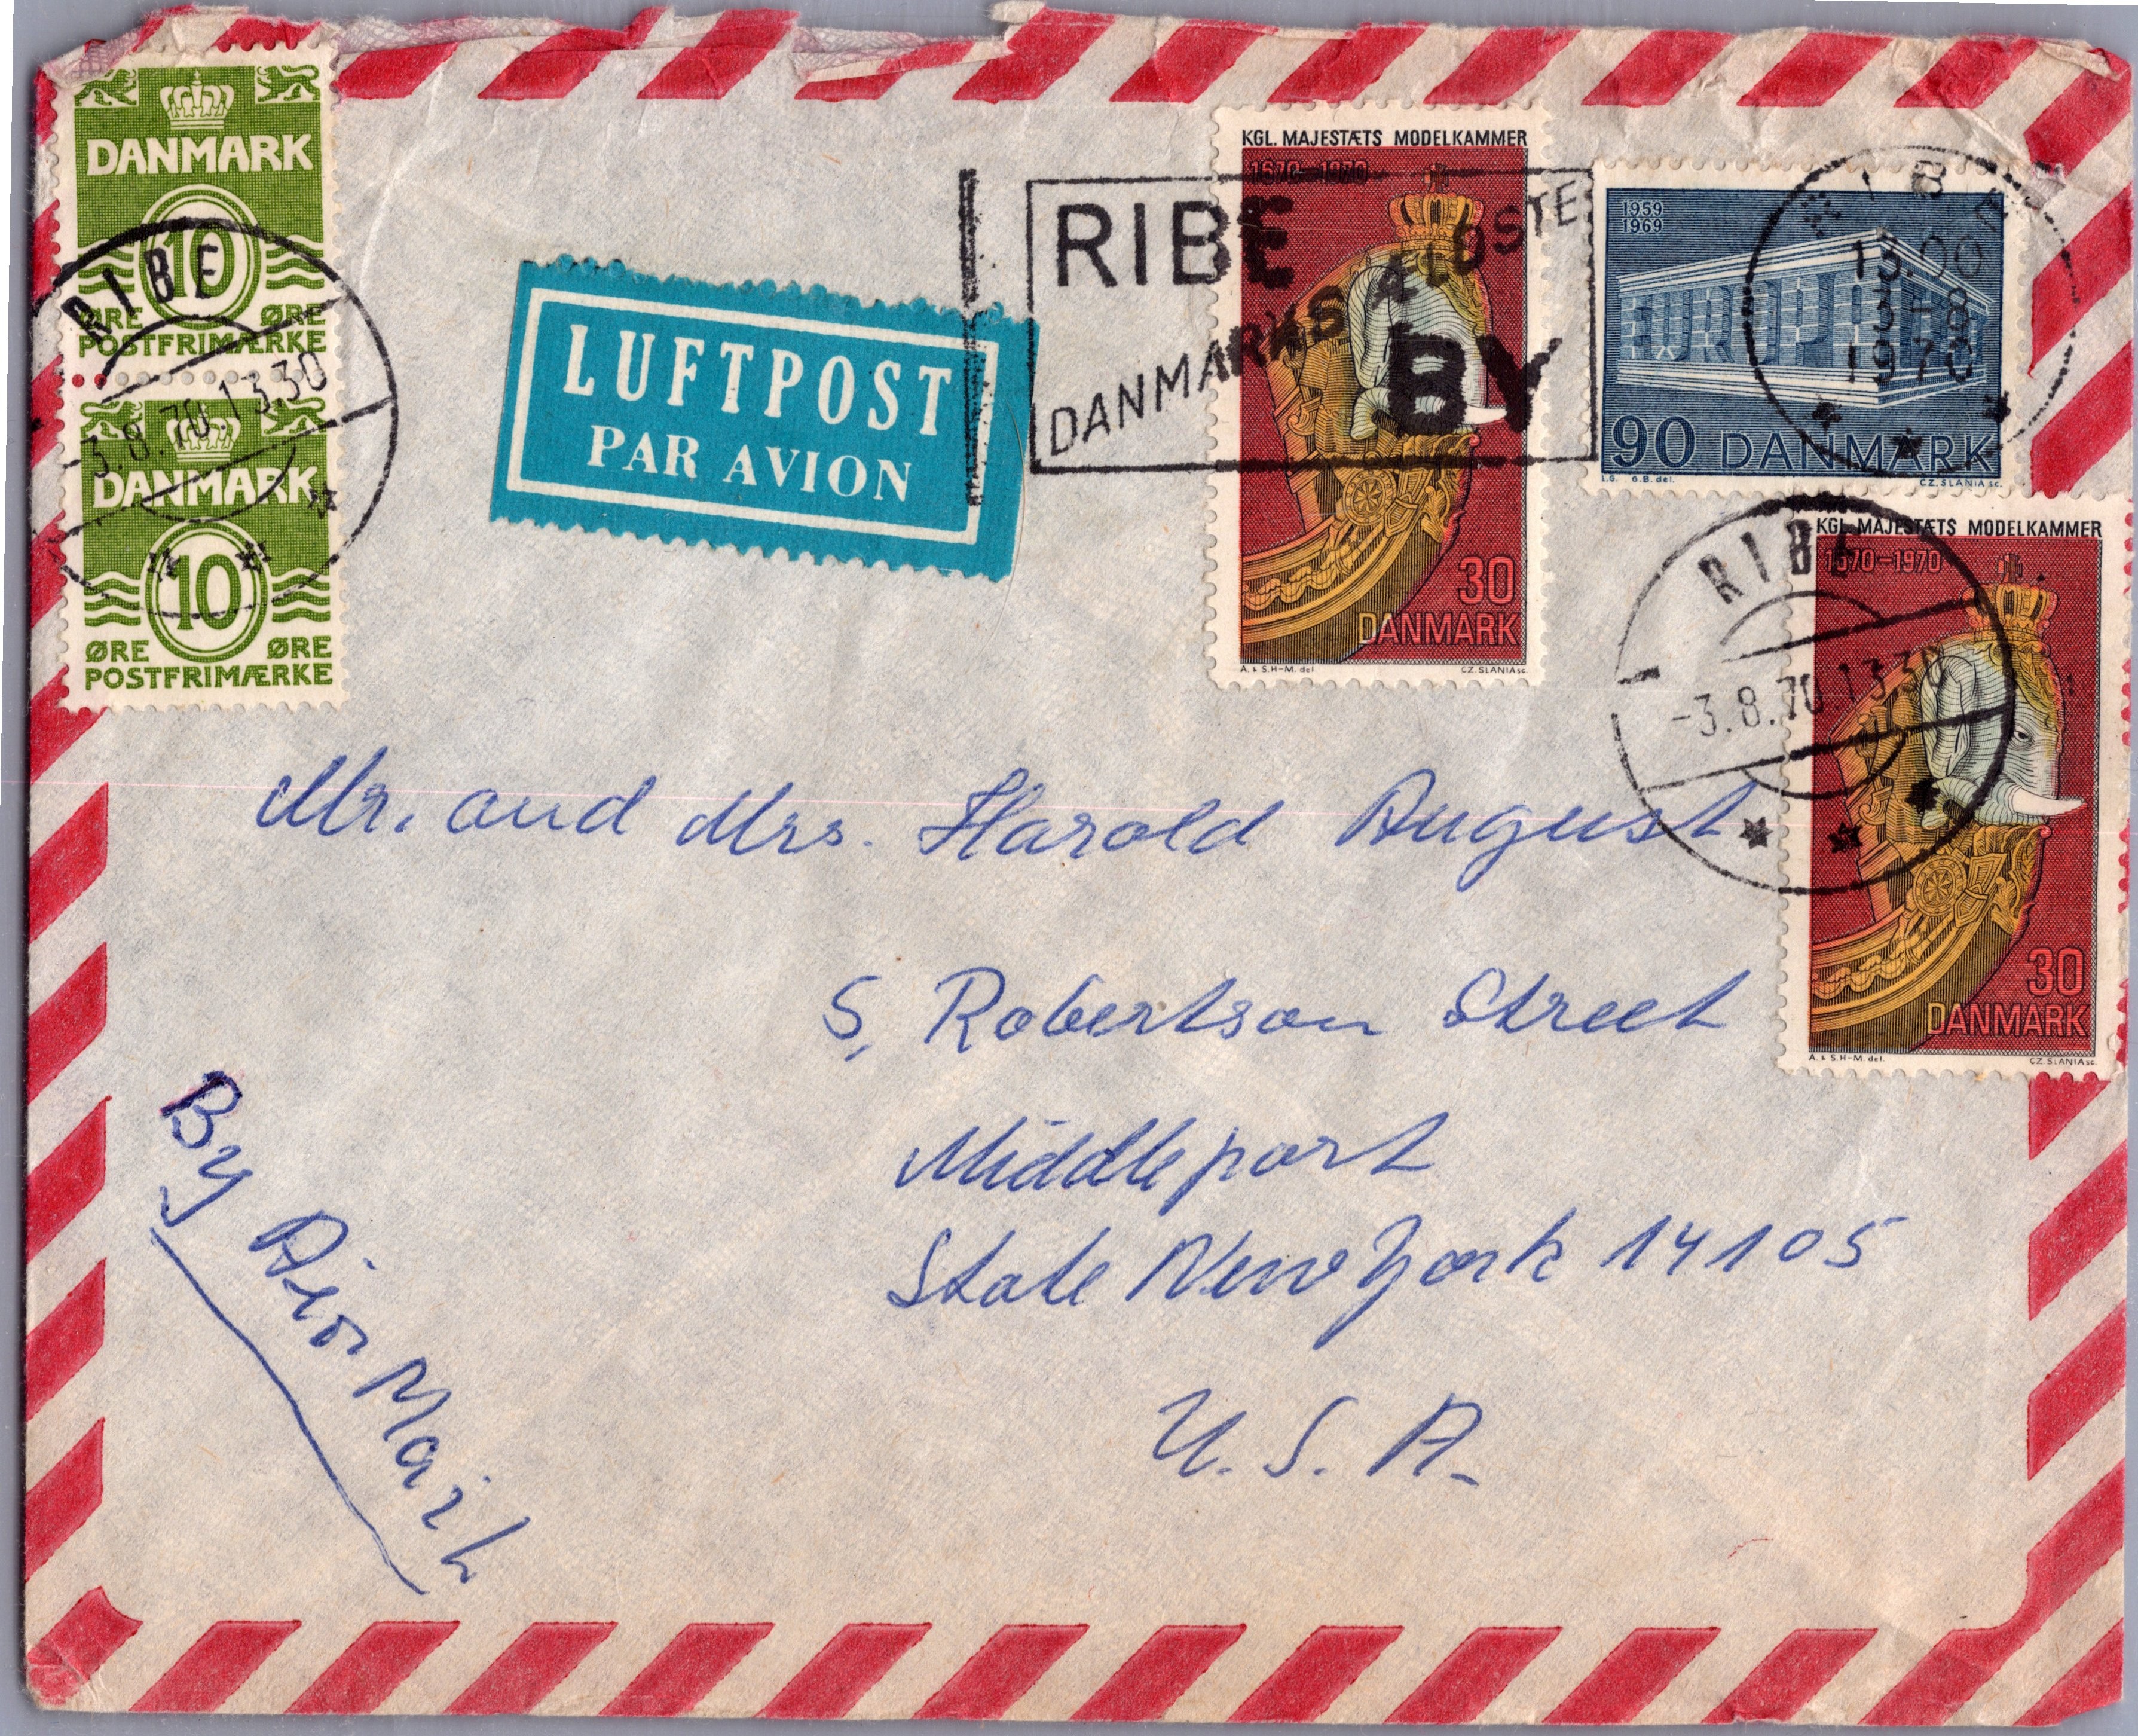 DANMARK
10
ØRE ØRE
POSTFRIMÆRKE
RIBE
-3.8.70.13.30
DANMARK
10
ØRE ØRE
POSTFRIMÆRKE
LUFTPOST
PAR AVION
RIBE
DANMARKS ÆLDSTE
BY
KGL. MAJESTÆTS MODELKAMMER
1670-1970
30
DANMARK
A. & S.H-M. del. CZ. SLANIA sc.
1959
1969
90 DANMARK
I.G. G.B. del. CZ. SLANIA sc.
RIBE
13.00
3-8
1970
KGL. MAJESTÆTS MODELKAMMER
1670-1970
30
DANMARK
A. & S.H-M. del. CZ. SLANIA sc.
RIBE
-3.8.70.13.30
Mr. and Mrs. Harold August
5, Robertson Street
Middleport
State New York 14105
U.S.A.
By Air Mail